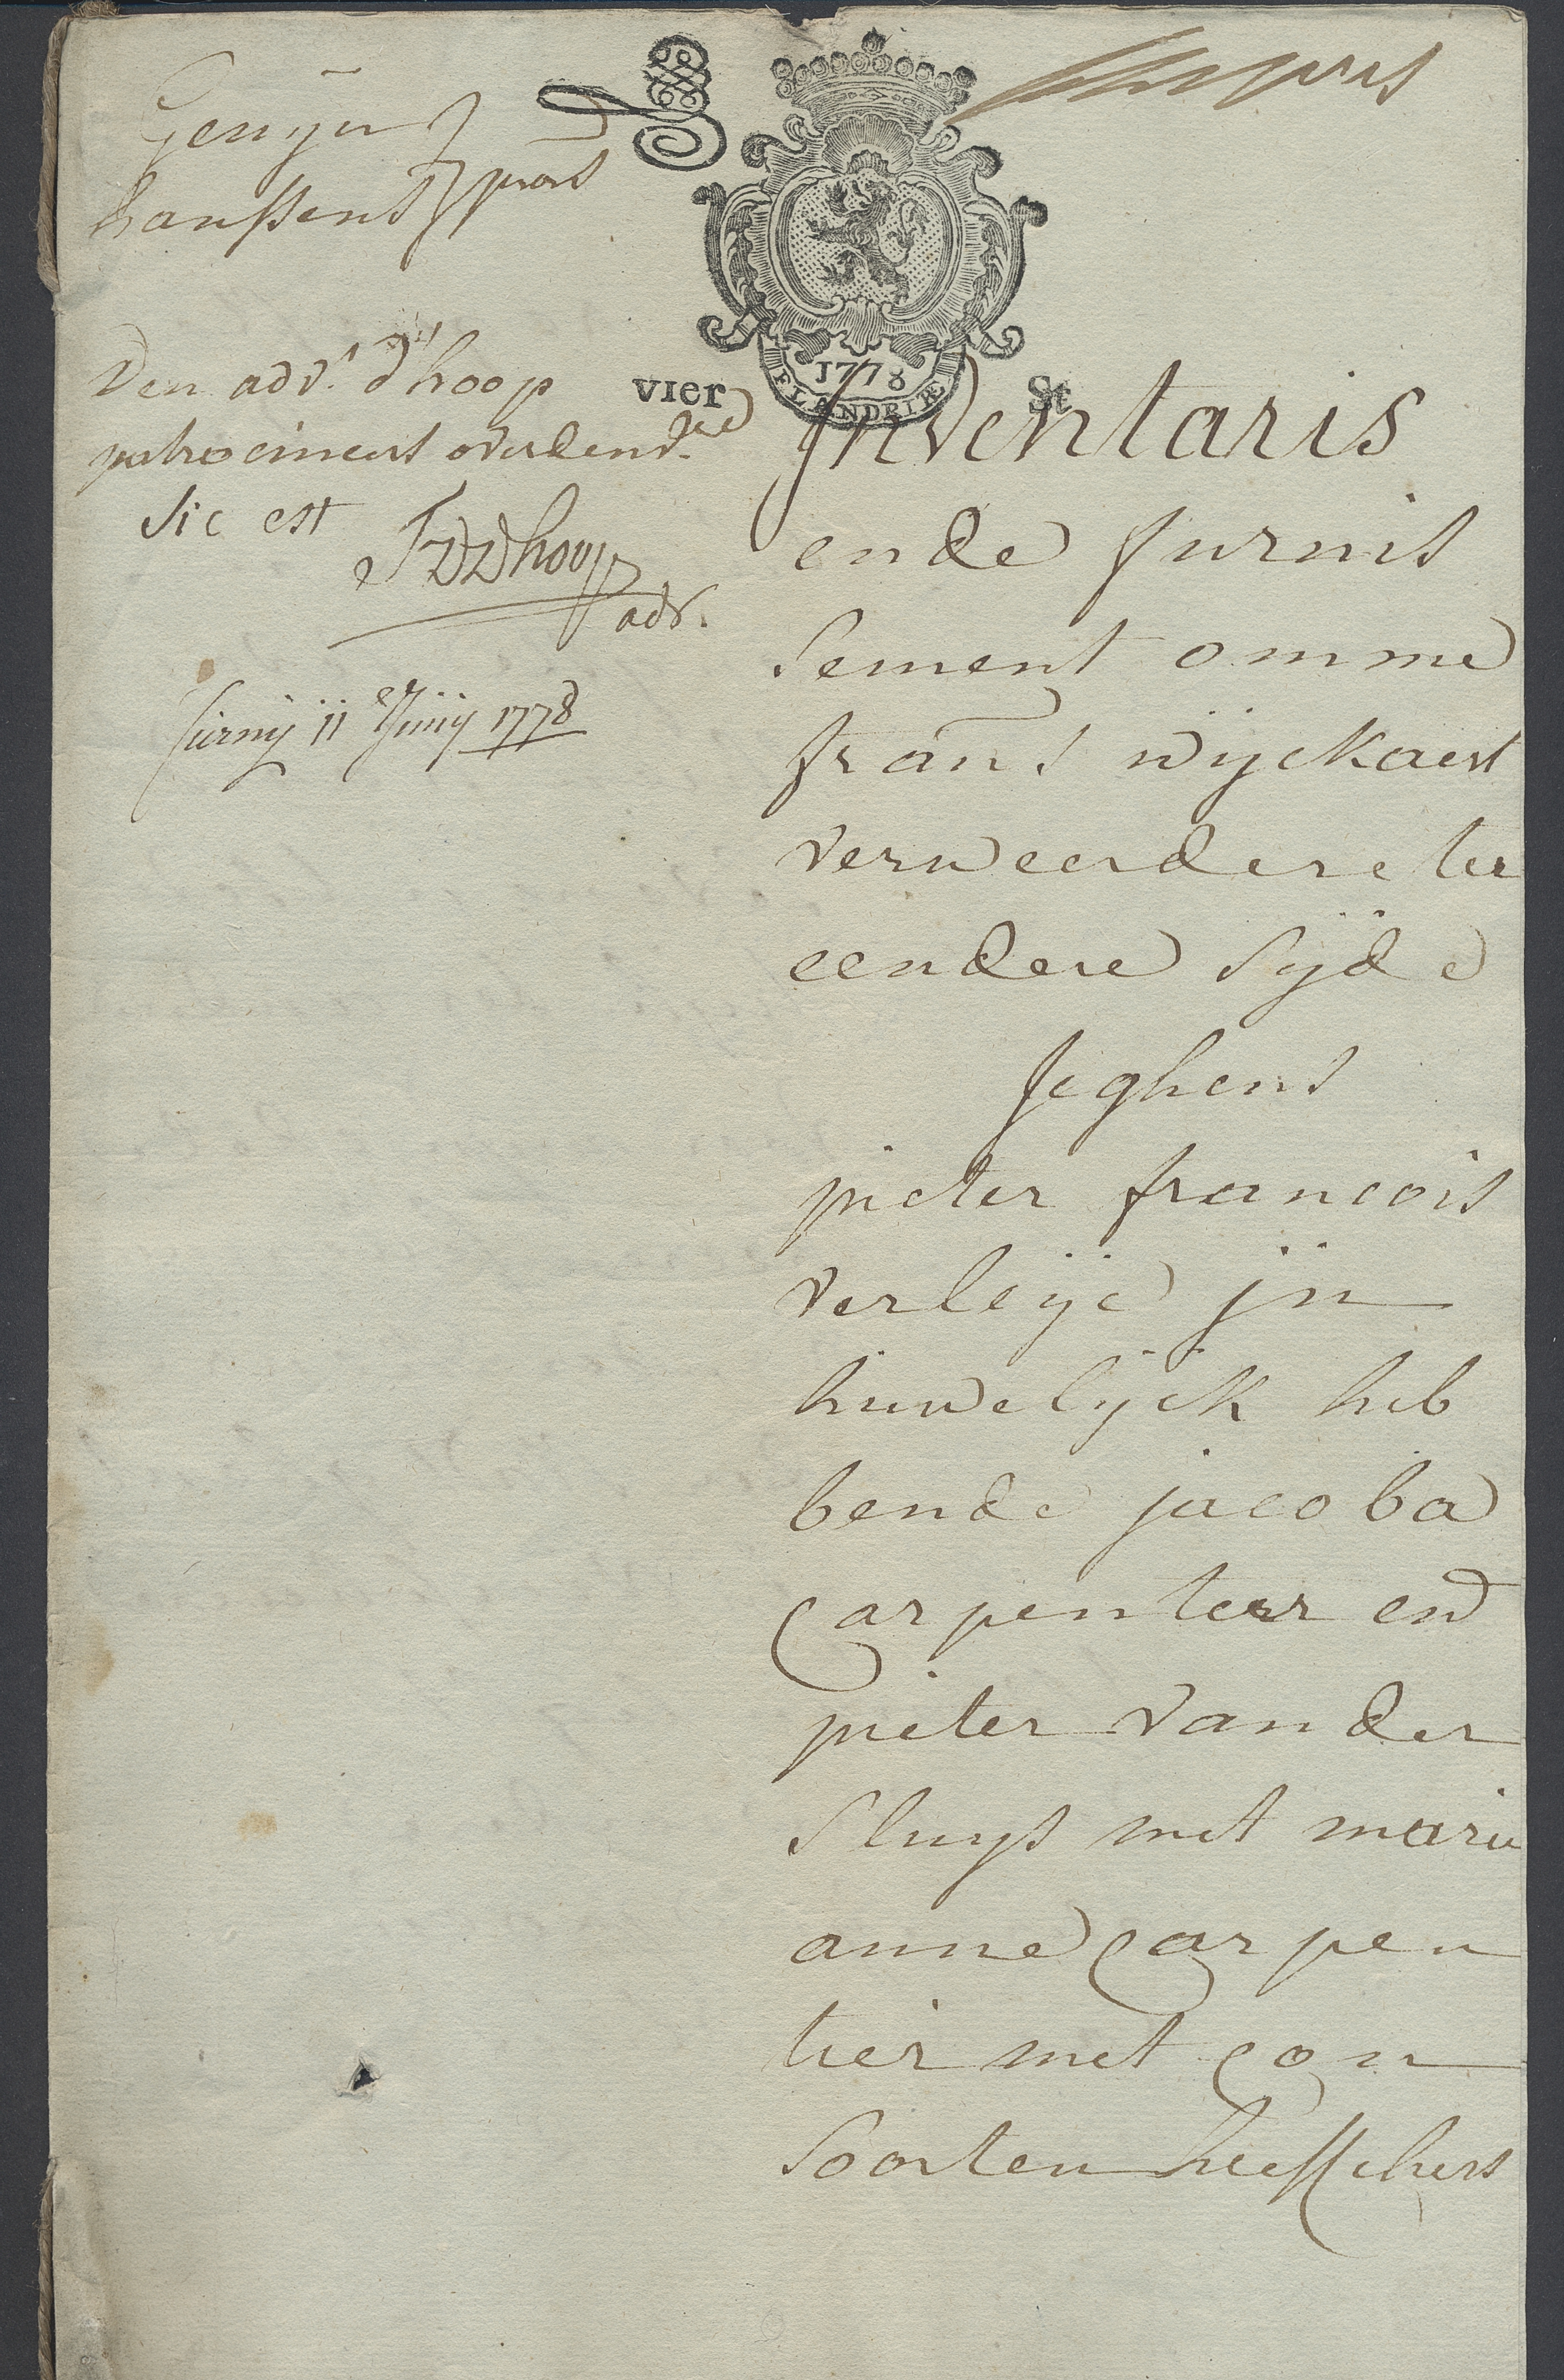 Genijn
hanssens pro.rs
Den adv.t d'hoop
patrocineert overdend.re
Sic est
JDDhoop
adv.
furny 11 Junij 1778
1778
FLANDRIÆ
vier St
Inventaris
ende furnis
sement omme
frans wijckaert
verweerdere ter
eendere sijde
Jeghens
pieter francois
verleije jn
huwelijck heb
bende jacoba
Carpentier end
pieter vander
sluys met marie
anne Carpen
tier met con
soorten heesschers